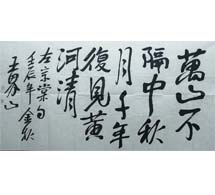 萬山不
隔中秋
月千年
復見黃
河清
左宗棠句
壬辰年金秋
王界山